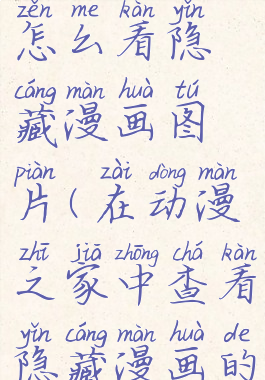 zěn me kàn yǐn
怎么看隐
cáng màn huà tú
藏漫画图
piàn zài dòng màn
片(在动漫
zhī jiā zhōng chá kàn
之家中查看
yǐn cáng màn huà de
隐藏漫画的